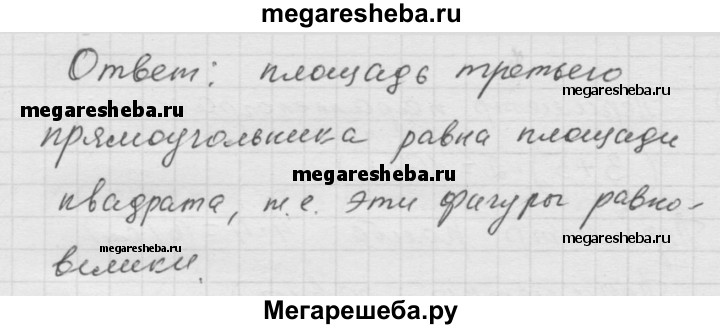 megaresheba.ru
Ответ: площадь третьего
megaresheba.ru
megaresheba.ru
прямоугольника равна площади
megaresheba.ru
квадрата, т.е. эти фигуры равно-
megaresheba.ru
megaresheba.ru
велики.
Мегарешеба.ру